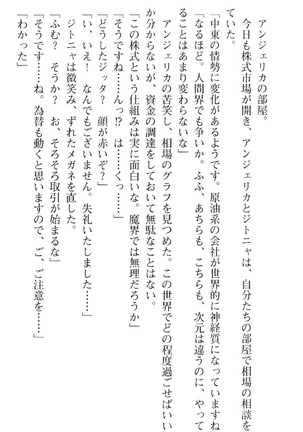 アンジェリカの部屋。
　今日も株式市場が開き、アンジェリカとジトニャは、自分たちの部屋で相場の相談を
していた。
「中東の情勢に変化があるようです。原油系の会社が世界的に神経質になっていますね」
「なるほど。人間界でも争いか。ふふ、あちらも、こちらも、次元は違うのに、やって
ることはあまり変わらないな」
　アンジェリカの苦笑し、相場のグラフを見つめた。この世界でどの程度過ごせばいい
か分からないが、資金の調達をしておいて無駄なことはない。
「この株式という仕組みは実に面白いな。魔界では無理だろうか」
「そうですね……んっ!?　は……くっ……」
「どうしたジッタ？　顔が赤いぞ？」
「い、いえ！　なんでもございません。失礼いたしました……」
　ジトニャは微笑み、ずれたメガネを直した。
「ふむ？　そうか？　お、そろそろ取引が始まるな」
「そうです……ね。為替も動くと思いますので、ご、ご注意を……」
「わかった」